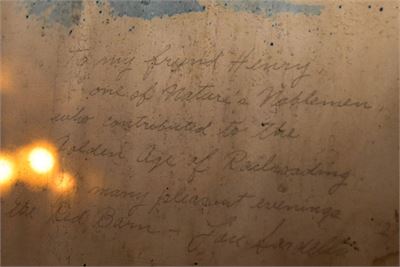 To my friend Henry
one of Nature's Noblemen
who contributed to the
Golden Age of Railroading
many pleasant evenings
the Red Barn –